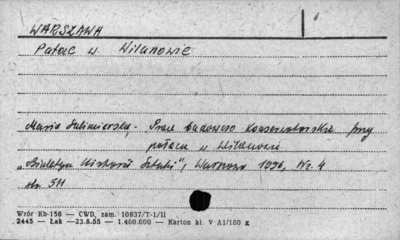 WARSZAWA
Pałac w Wilanowie
Maria - Prace budowlano konserwatorskie przy
pałacu w Wilanowie
"Biuletyn Historii Sztuki", Warszawa 1956, Nr. 4
str. 511
Wzór Kb-156 — CWD, zam. 10837/T-1/II
2445 — Łak —23.8.55 — 1.460.600 — Karton kl. V A1/180 g